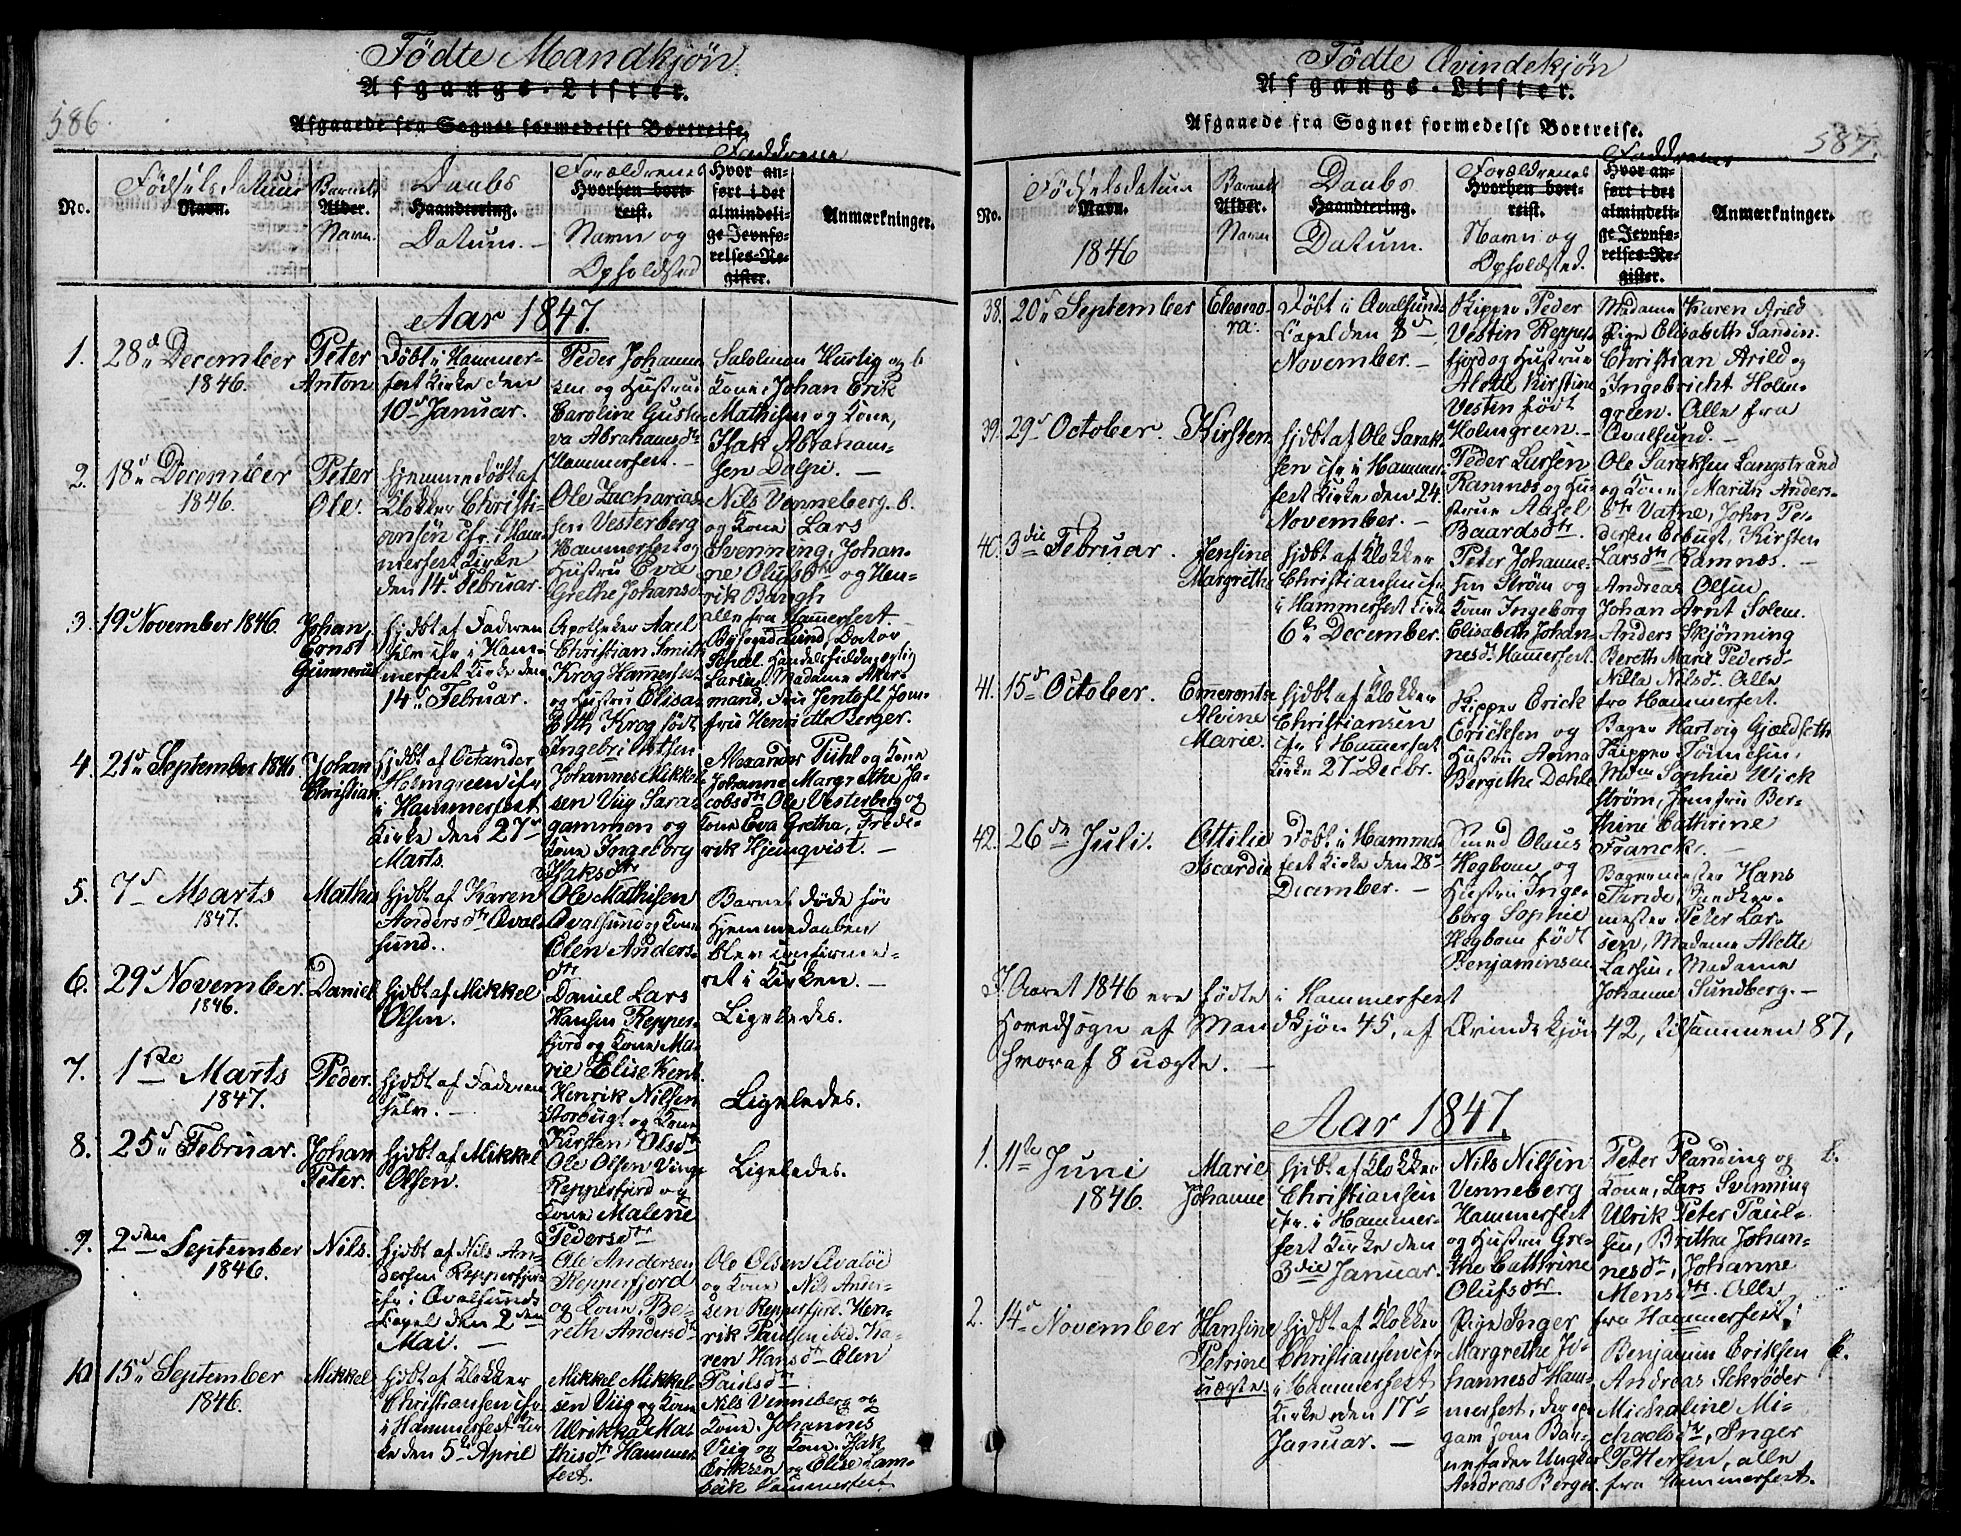 Födte Mandkjøn.
Afgangs-Lister.
586.
Afgaaede fra Sognet formedelst Bortreise.
No.
Fødselsdatum
Navn.
Barnets
Alder.
Navn.
Daabs
Haandtering.
Datum.
Forældrenes
Hvorhen bort-
reist.
Navn og
Opholdsted
Faddrene
Hvor an-
ført i det
almindeli-
ge Jevnfø-
relses-Re-
gister.
Anmærkninger.
Aar 1847.
1. 28d December
1846.
Peter
Anton
Döbt i Hammer-
fest Kirke den
10d Januar.
Peder Johanne-
sen og Hustru
Caroline Gusta-
va Abrahamsdtr
Hammerfest.
Salolmon Hurtig og b
Kone, Johan Erik
Mathisen og Kone,
Isak Abraham-
sen Dalpi.
2. 18d December
1846.
Peter
Ole.
Hjemmedöbt af
Klokker Christi-
ansen cfr. i Ham-
merfest Kirke
den 14d Februar.
Ole Zacharias-
sen Vesterberg
Hammerfest og
Hustru Eva
Grethe Johansd
Nils Venneberg. b.
og Kone Lars
Svenning, Johan-
ne Olufsdtr og Hen-
rik Bangh
alle fra Hammerfest.
3. 19d November 1846.
Johan,
Ernst
Gunnerus
hjdbt af Faderen
selv cfr i Ham-
merfest Kirke den
14d Februar.
Apotheker Axel
Christian Smith
Krog Hammerfest
og Hustru Elisa-
beth Krog født
Ingebrichtsen
Byfoged Lund, Doctor
Scheel, Handelsfuldmægtig
Larsen, Madame Aker-
mand, Fru Jentoft Jom-
fru Henriette Berger.
4. 21d September 1846.
Johan
Christian
hjdbt af Octander
Holmgreen cfr
i Hammerfest
Kirke den 27d
Marts.
Johannes Mikkel-
sen Viig Sara-
gammen og
Kone Ingeborg
Isaksdtr
Alexander Pühl og Kone
Johanne Margrethe Ja-
cobsdtr Ole Vesterberg og
Kone Eva Gretha, Frede-
rik Hjemqvist.
5. 7d Marts
1847.
Mathis
hjdbt af Karen
Andersdtr Qval-
sund.
Ole Mathisen
Qvalsund og Kone
Elen Anders-
dtr
Barnet døde før
Hjemmedaaben
blev confirme-
ret i Kirken.
6. 29d November.
1846.
Daniel
hjdbt af Mikkel
Olsen.
Daniel Lars
Hansen Repper-
fjord og Kone Ma-
rie Elise Kent.
Ligeledes.
7. 1ste Marts
1847.
Peder.
hjdbt af Faderen
selv.
Henrik Nilsen
Storbugt og Kone
Kirsten Olsdtr
Ligeledes.
8. 25d Februar.
Johan
Peter.
hjdbt af Mikkel
Olsen.
Ole Olsen Vinge
Repperfjord og
Kone Malene
Pedersdtr
Ligeledes.
9. 2den September
1846.
Nils.
hjdbt af Nils An-
dersen Repperfjord
cfr i Qvalsunds
Capel den 2den
Mai.
Ole Andersen
Repperfjord
og Kone Be-
reth Andersdtr
Ole Olsen Qvaløe
og Kone Nils Ander-
sen Repperfjord. Hen-
rik Paulsen ibid. Ka-
ren Hansdtr Elen
Paulsdtr
10. 15d September
1846.
Mikkel
hjdbt af Klokker
Christiansen cfr
i Hammerfest Kir-
ke den 5te April
Mikkel Mikkel-
sen Viig og Kone
Ulrikka Ma-
thisdtr Hammer-
fest.
Nils Venneberg og
Kone, Johannes
Viig og Kone. Isak
Eriksen og Elise Lam-
bæk Hammerfest
Fødte Qvindekjön
Afgangs-Lister.
Afgaaede fra Sognet formedelst Bortreise.
587.
No.
Fødselsdatum
Navn.
1846
Barnets
Alder.
Navn
Daabs
Haandtering.
Datum.
Forældrenes
Hvorhen bort-
reist.
Navn og
Opholdsted.
Faddrenes
Hvor an-
ført i det
almindeli-
ge Jevnfø-
relses-Re-
gister.
Anmærkninger.
38. 20d September
Eleono-
ra.
Döbt i Qvalsunds
Capel den 8d
November.
Skipper Peder
Vestin Repper-
fjord og Hustrue
Alette Kirstine
Vestin født
Holmgreen.
Madame Karen Arild
Pige Elisabeth Sandin
Christian Arild og
Ingebricht Holm-
green. Alle fra
Qvalsund.
39. 29d October.
Kirsten
hjdbt af Ole Sarak-
sen cfr i Hammer-
fest Kirke den 24.
November.
Peder Larsen
Ramnæs og Hu-
strue Aasel
Baardsdtr.
Ole Saraksen Langstrand
og Kone, Marith Anders-
dtr Vatne, John Pe-
dersen Erbugt, Kirsten
Larsdtr Ramnæs.
40. 3die Februar.
Jensine
Margrethe
hjdbt af Klokker
Christiansen cfr
i Hammerfest Kirke
6te December.
Peder Johanne-
sen Strøm og
Kone Ingeborg
Elisabeth Johan-
nesdtr Hammerfest.
Andreas Olsen
Johan Arnt Solem.
Anders Skjønning
Bereth Marie Pedersd
Nilla Nilsdtr. Alle
fra Hammerfest.
41. 15d October.
Emerentse
Alvine
Marie.
hjdbt af Klokker
Christiansen
cfr i Hammerfest
Kirke 27d Decbr.
Skipper Erick
Ericksen og
Hustru Anna
Bergethe Dæhle
Bager Hartvig Gjældseth
Skipper Tømesen,
Mdm Sophie Wick
strøm, Jomfru Ber-
thine Cathrine
Franck.
42. 26de Juli.
Ottilie
Iscardie
Döbt i Hammer-
fest Kirke den 28d
December.
Smed Olaus
Hegbom og
Hustru Inge-
borg Sophie
Hegbom født
Benjaminsen
Bagermester Hans
Funde, Snedker-
mester Peter Lar-
sen, Madame Alette
Larsen, Madame
Johanne Sundberg.
I Aaret 1846 ere fødte i Hammerfest
Hovedsogn af Mandkjön 45, af Qvindekjön 42, tilsammen 87,
hvoraf 8 uægte.
Aar 1847.
1. 11te Juni
1846.
Marie
Johanne
hjdbt af Klokker
Christiansen
cfr. i Hammer-
fest Kirke den
3die Januar.
Nils Nilsen
Venneberg
Hammerfest
og Hustru Gre-
the Cathrine
Olufsdtr.
Peter Planding og b.
Kone, Lars Svenning
Ulrik Peter Paul-
sen, Britha Johan-
nesdtr, Johanne
Mensdtr. Alle
fra Hammerfest.
2. 14d November
Hansine
Petrine
uægte
hjdbt af Klokker
Christiansen cfr
i Hammerfest
Kirke den 17d
Januar.
Pige Inger
Margrethe Jo-
hannesd Ham-
merfest, der op-
gav som Bar-
nefader Ungkar
Andreas Berger.
Benjamin Eriksen b.
Andreas Schrøder
Michaline Mi-
chaelsdtr, Inger
Pettersen, alle
fra Hammerfest.